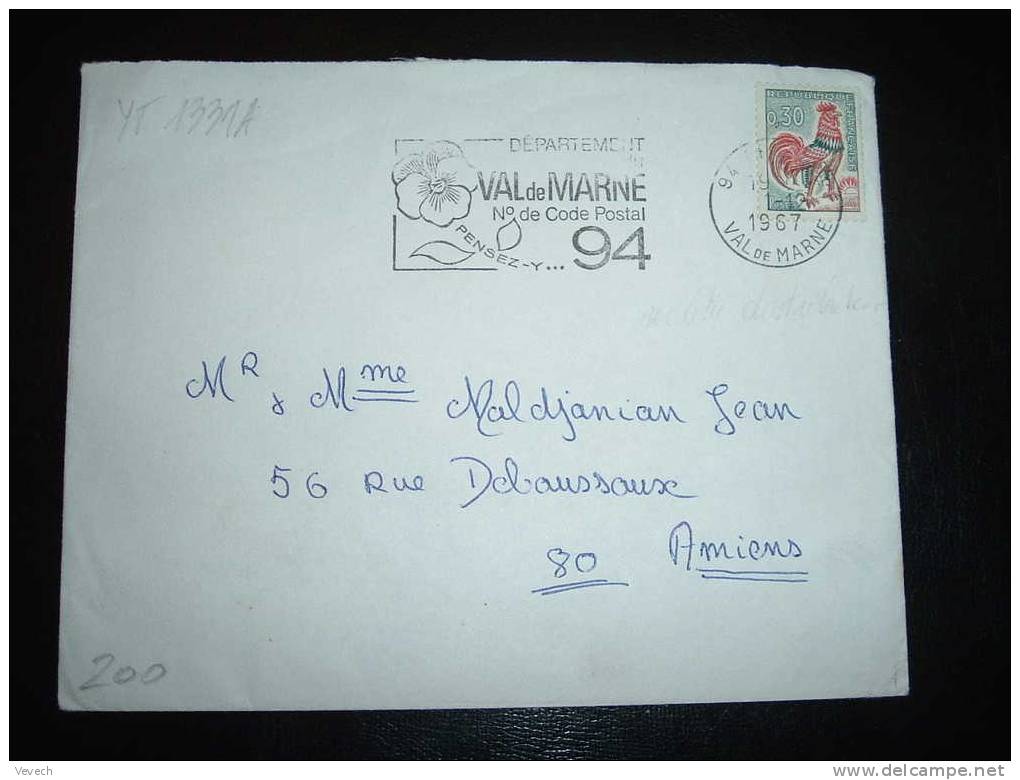 YT 1331A
DÉPARTEMENT
DU
VAL de MARNE
No de Code Postal
PENSEZ-Y... 94
REPUBLIQUE FRANÇAISE
0,30
94
1967
VAL DE MARNE
MR & Mme Maldjanian Jean
56 Rue Debaussaux
80 Amiens
200
Vevech
delcampe.net